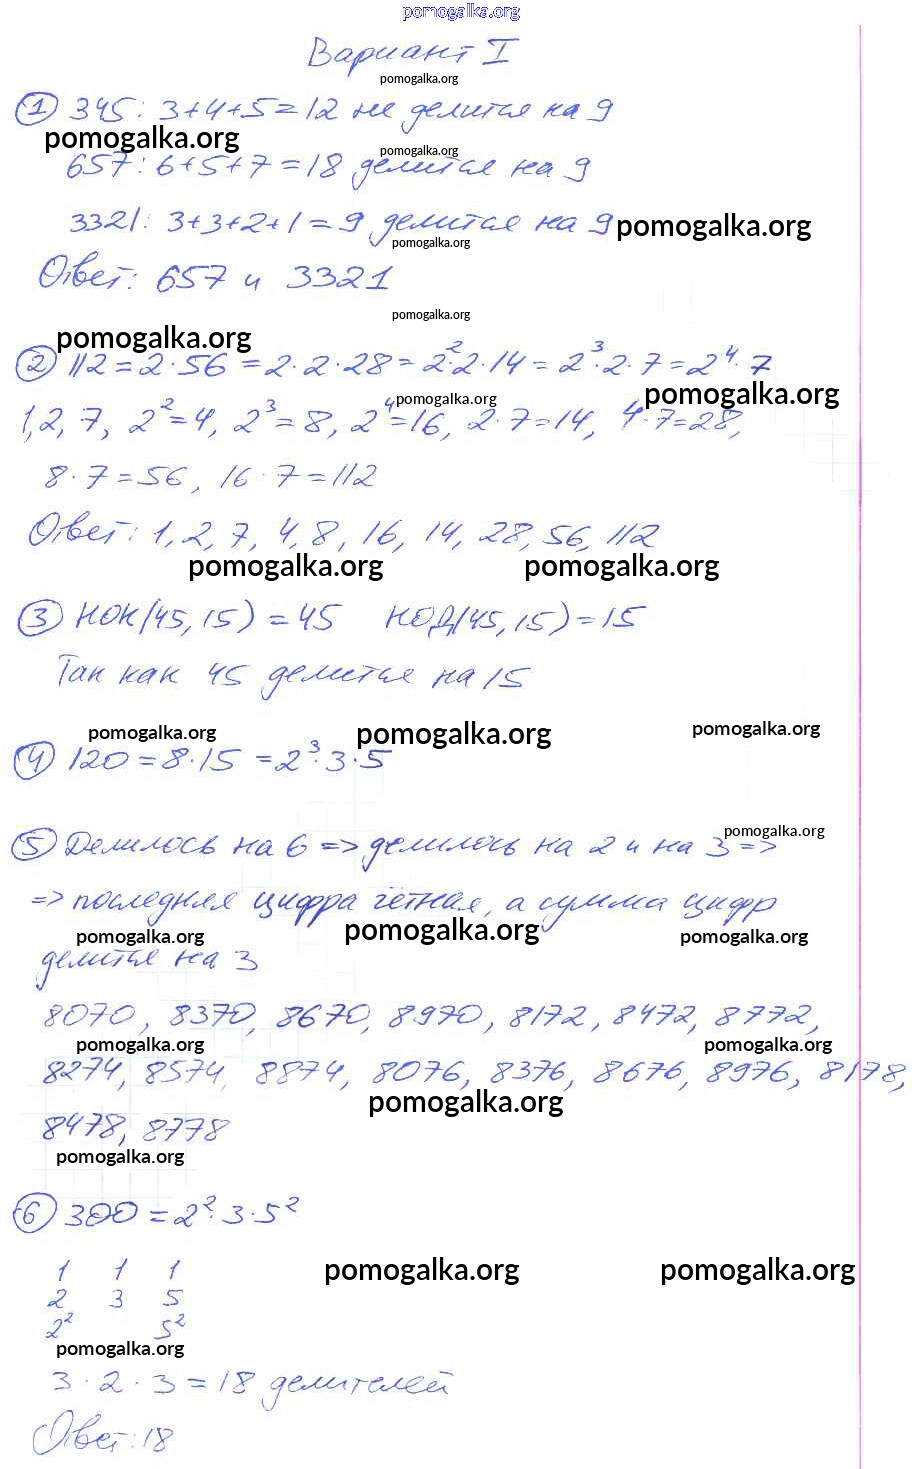 pomogalka.org
Вариант I
pomogalka.org
① 345: 3+4+5=12 не делится на 9
pomogalka.org pomogalka.org
657: 6+5+7=18 делится на 9
3321: 3+3+2+1=9 делится на 9 pomogalka.org
pomogalka.org
Ответ: 657 и 3321
pomogalka.org
pomogalka.org
② 112=2·56=2·2·28=2²·2·14=2³·2·7=2⁴·7
pomogalka.org pomogalka.org
1, 2, 7, 2²=4, 2³=8, 2⁴=16, 2·7=14, 4·7=28,
8·7=56, 16·7=112
Ответ: 1, 2, 7, 4, 8, 16, 14, 28, 56, 112
pomogalka.org pomogalka.org
③ НОК(45,15)=45 НОД(45,15)=15
Так как 45 делится на 15
pomogalka.org pomogalka.org pomogalka.org
④ 120=8·15=2³·3·5
pomogalka.org
⑤ Делилось на 6 => делилось на 2 и на 3 =>
=> последняя цифра чётная, а сумма цифр
pomogalka.org pomogalka.org pomogalka.org
делится на 3
8070, 8370, 8670, 8970, 8172, 8472, 8772,
pomogalka.org pomogalka.org
8274, 8574, 8874, 8076, 8376, 8676, 8976, 8178,
pomogalka.org
8478, 8778
pomogalka.org
⑥ 300=2²·3·5²
1 1 1
pomogalka.org pomogalka.org
2 3 5
2² 5²
pomogalka.org
3·2·3=18 делителей
Ответ: 18